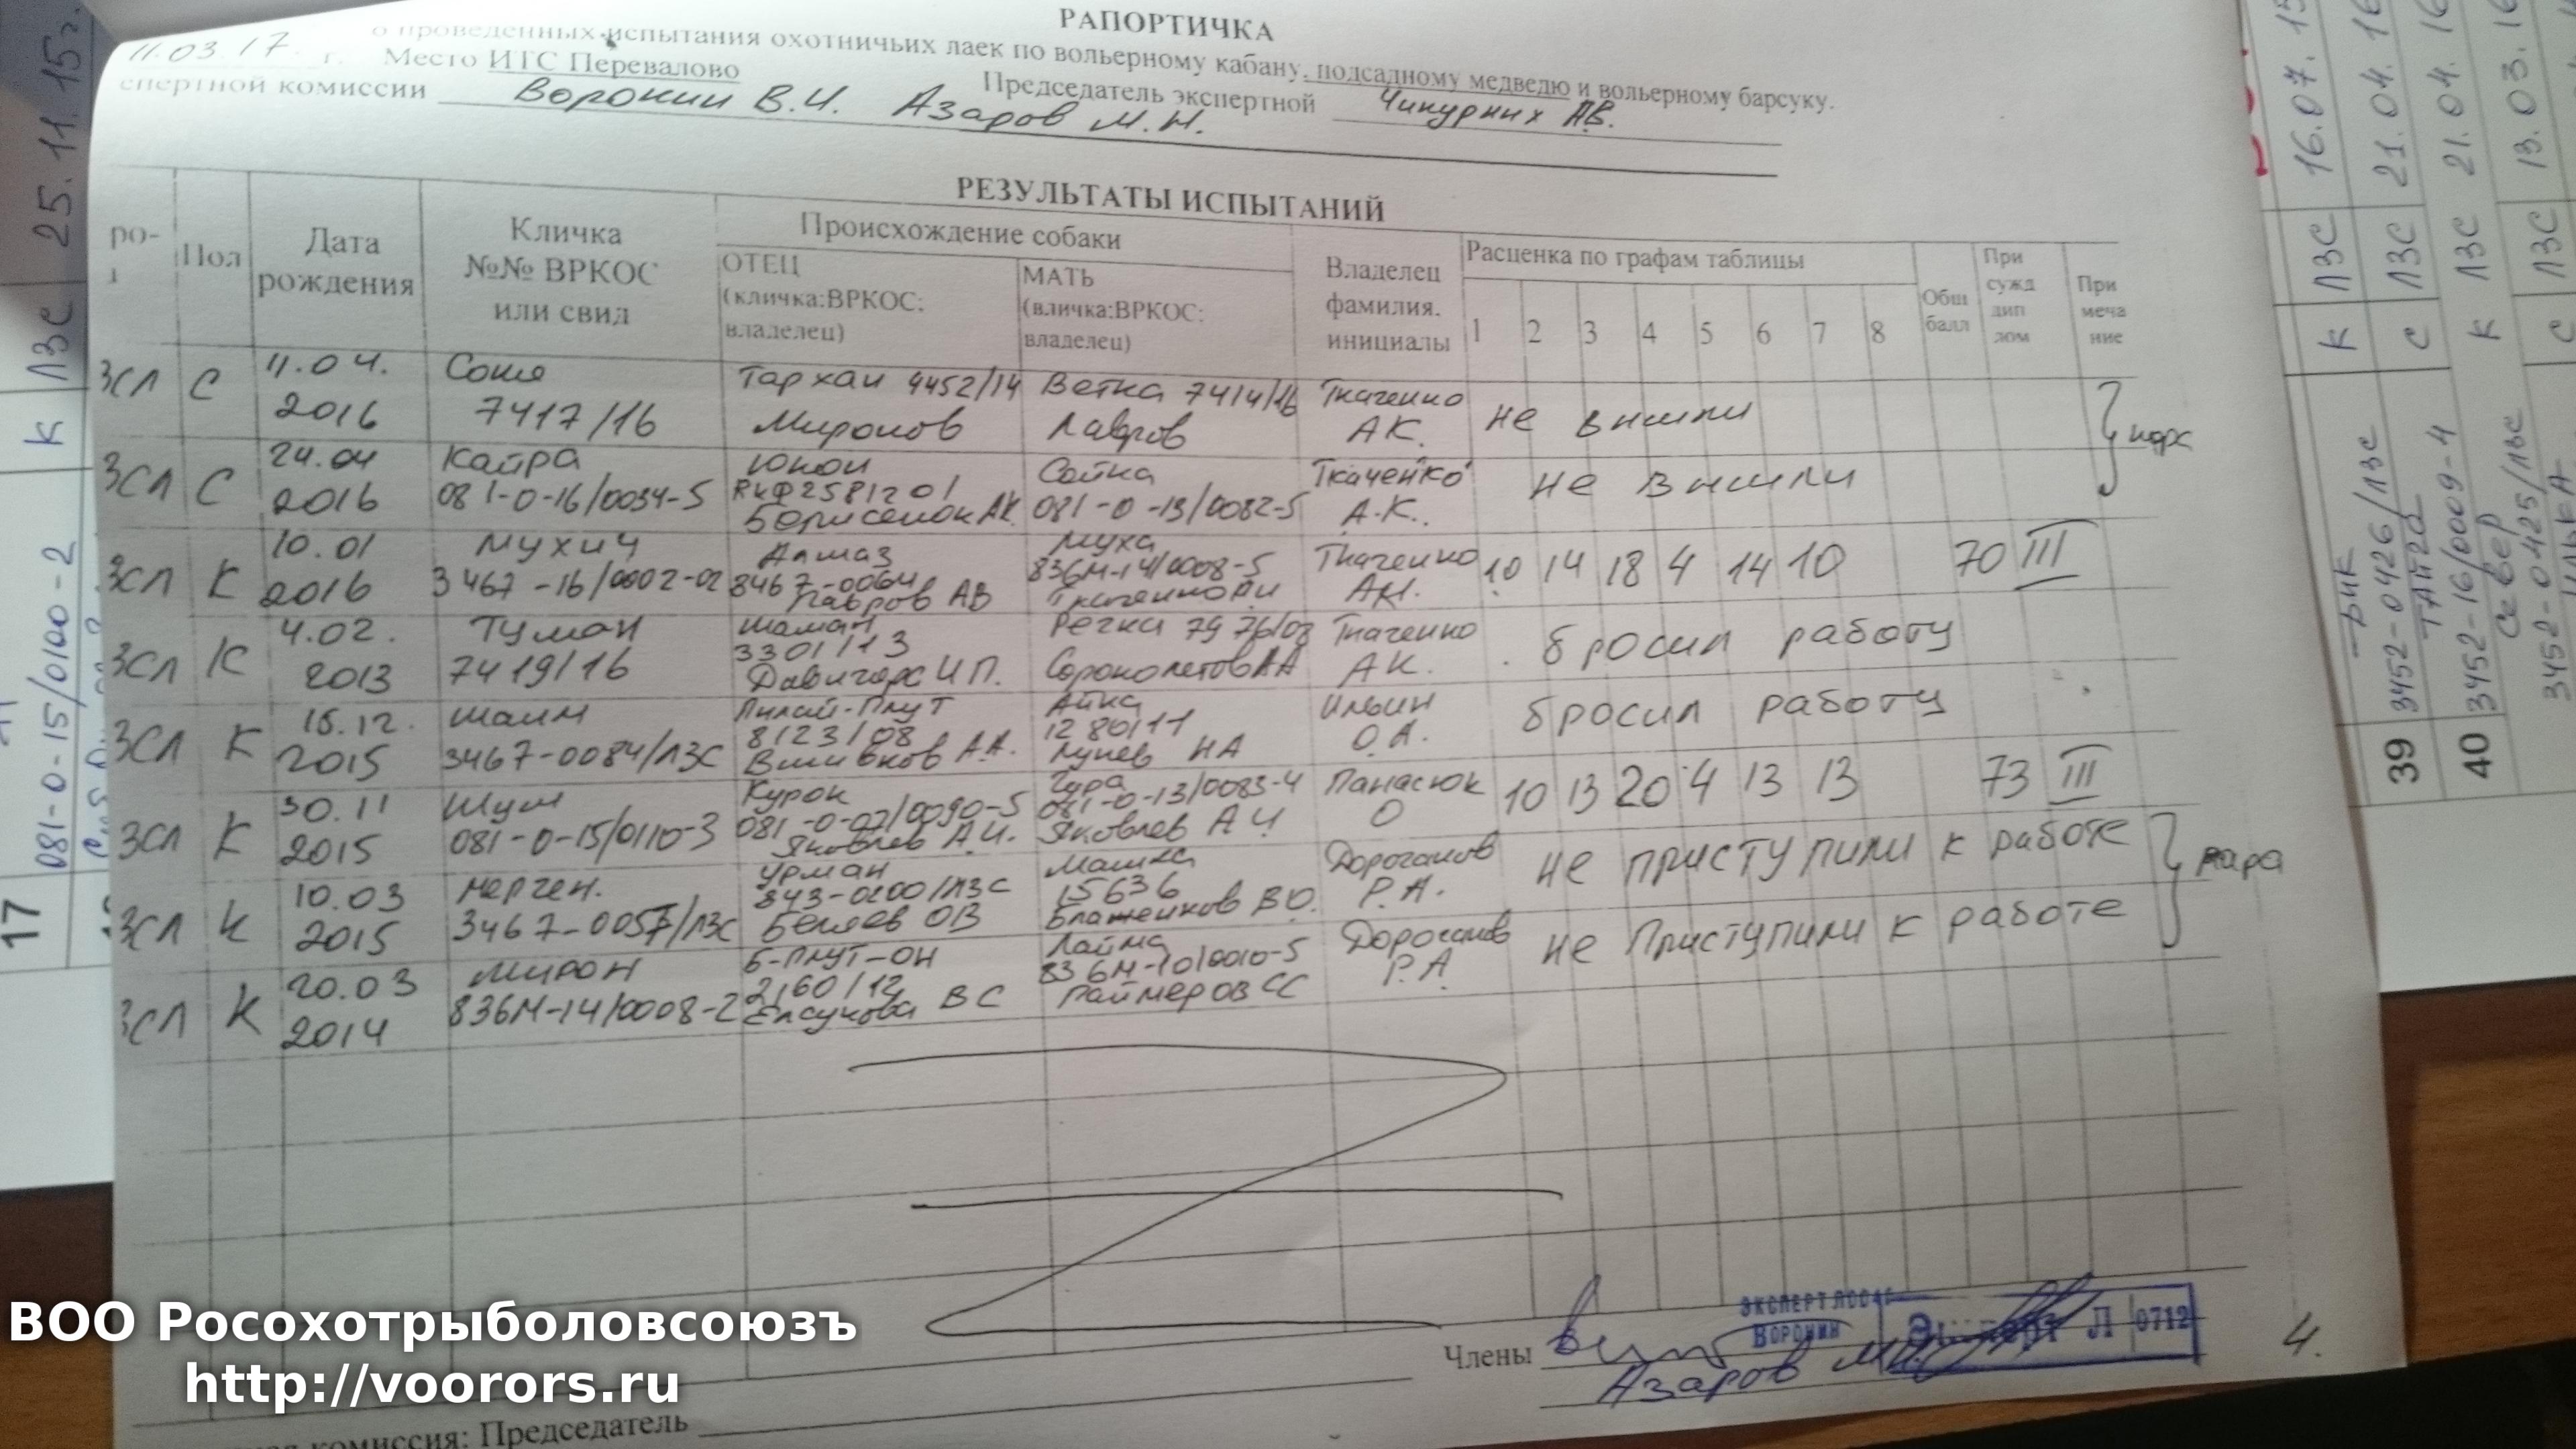 РАПОРТИЧКА
о проведенных испытания охотничьих лаек по вольерному кабану, подсадному медведю и вольерному барсуку.
11.03.17. г. Место ИТС Перевалово
спертной комиссии Воронин В.И. Азаров М.Н. Председатель экспертной Чикурних А.В.
РЕЗУЛЬТАТЫ ИСПЫТАНИЙ
ро- Пол Дата рождения Кличка №№ ВРКОС или свид Происхождение собаки Владелец фамилия. инициалы Расценка по графам таблицы Общ балл При сужд дип лом При меча ние
ОТЕЦ (кличка:ВРКОС: владелец) МАТЬ (вличка:ВРКОС: владелец) 1 2 3 4 5 6 7 8
ЗСЛ С 11.04. Тархан 4452/14 Ветка 7414/16 Ткаченко не вышли
2016 7417/16 Миронов Лавров А К.
ЗСЛ С 24.04 Кайра Сойка Ткаченко не вышли
2016 081-0-16/0034-5 РКФ2581201 081-0-13/0082-5 А.К.
Борисенок АК.
ЗСЛ К 10.01 Мухич Алмаз Муха Ткаченко 10 14 18 4 14 10 70 III
2016 3467-16/0002-02 3467-0064 836М-14/0008-5 АК.
Лавров АВ
ЗСЛ К 4.02. Туман Шаман Речка 7976/07 Ткаченко бросил работу
2013 7419/16 3301/13 Сороколетов АА А К.
ЗСЛ К 15.12. Айка Ильин бросил работу
2015 3467-0084/ЛЗС 8123/08 1280/11 О.А.
Вшивков А.А. Лунев НА
ЗСЛ К 30.11 Шум Курок Панасюк 10 13 20 4 13 13 73 III
2015 081-0-15/0110-3 081-0-07/0090-5 081-0-13/0083-4 О
Яковлев А.И. Яковлев А И
ЗСЛ К 10.03 Мерген. Урман Машка Дороганов не приступили к работе пара
2015 3467-0057/ЛЗС 843-0200/ЛЗС 15636 Р.А.
Беляев ОВ Блаженков ВО.
ЗСЛ К 20.03 Мирон Б-Плут-ОН Лайма Дороганов не Приступили к работе
2014 836М-14/0008-2 2160/12 836М-10/0010-5 Р.А
Елсукова ВС Раймеров СС
Члены
ВОРОНИН
Л 0712
Азаров
комиссия: Председатель
4.
ВОО Росохотрыболовсоюзъ
http://voorors.ru
17
081-0-15/0100-2
К ЛЗС 25.11.15г.
К ЛЗС 16.07.15
39 3452-0426/ЛЗС С ЛЗС 21.04.16
Тайга
40 3452-16/0009-4 К ЛЗС 21.04.16
Север
3452-0425/ЛЗС С ЛЗС 13.03.16